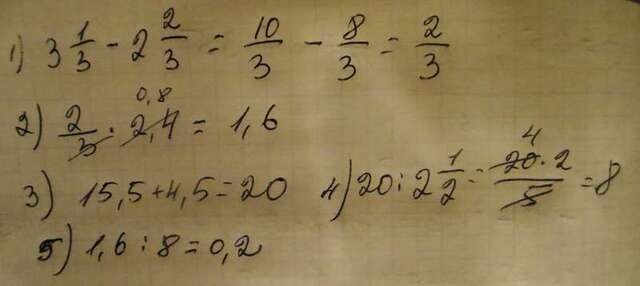 1) 3 1/3 - 2 2/3 = 10/3 - 8/3 = 2/3
0,8
2) 2/3 · 2,4 = 1,6
3) 15,5+4,5=20
4) 20:2 1/2 = 4 20·2/5 = 8
5) 1,6:8=0,2